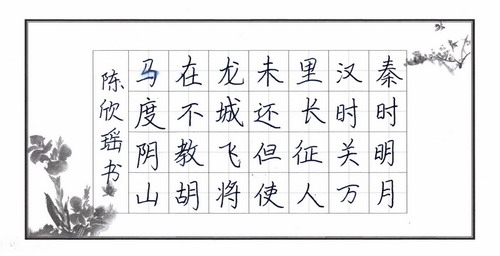 秦时明月
汉时关万
里长征人
未还但使
龙城飞将
在不教胡
马度阴山
陈欣瑶书